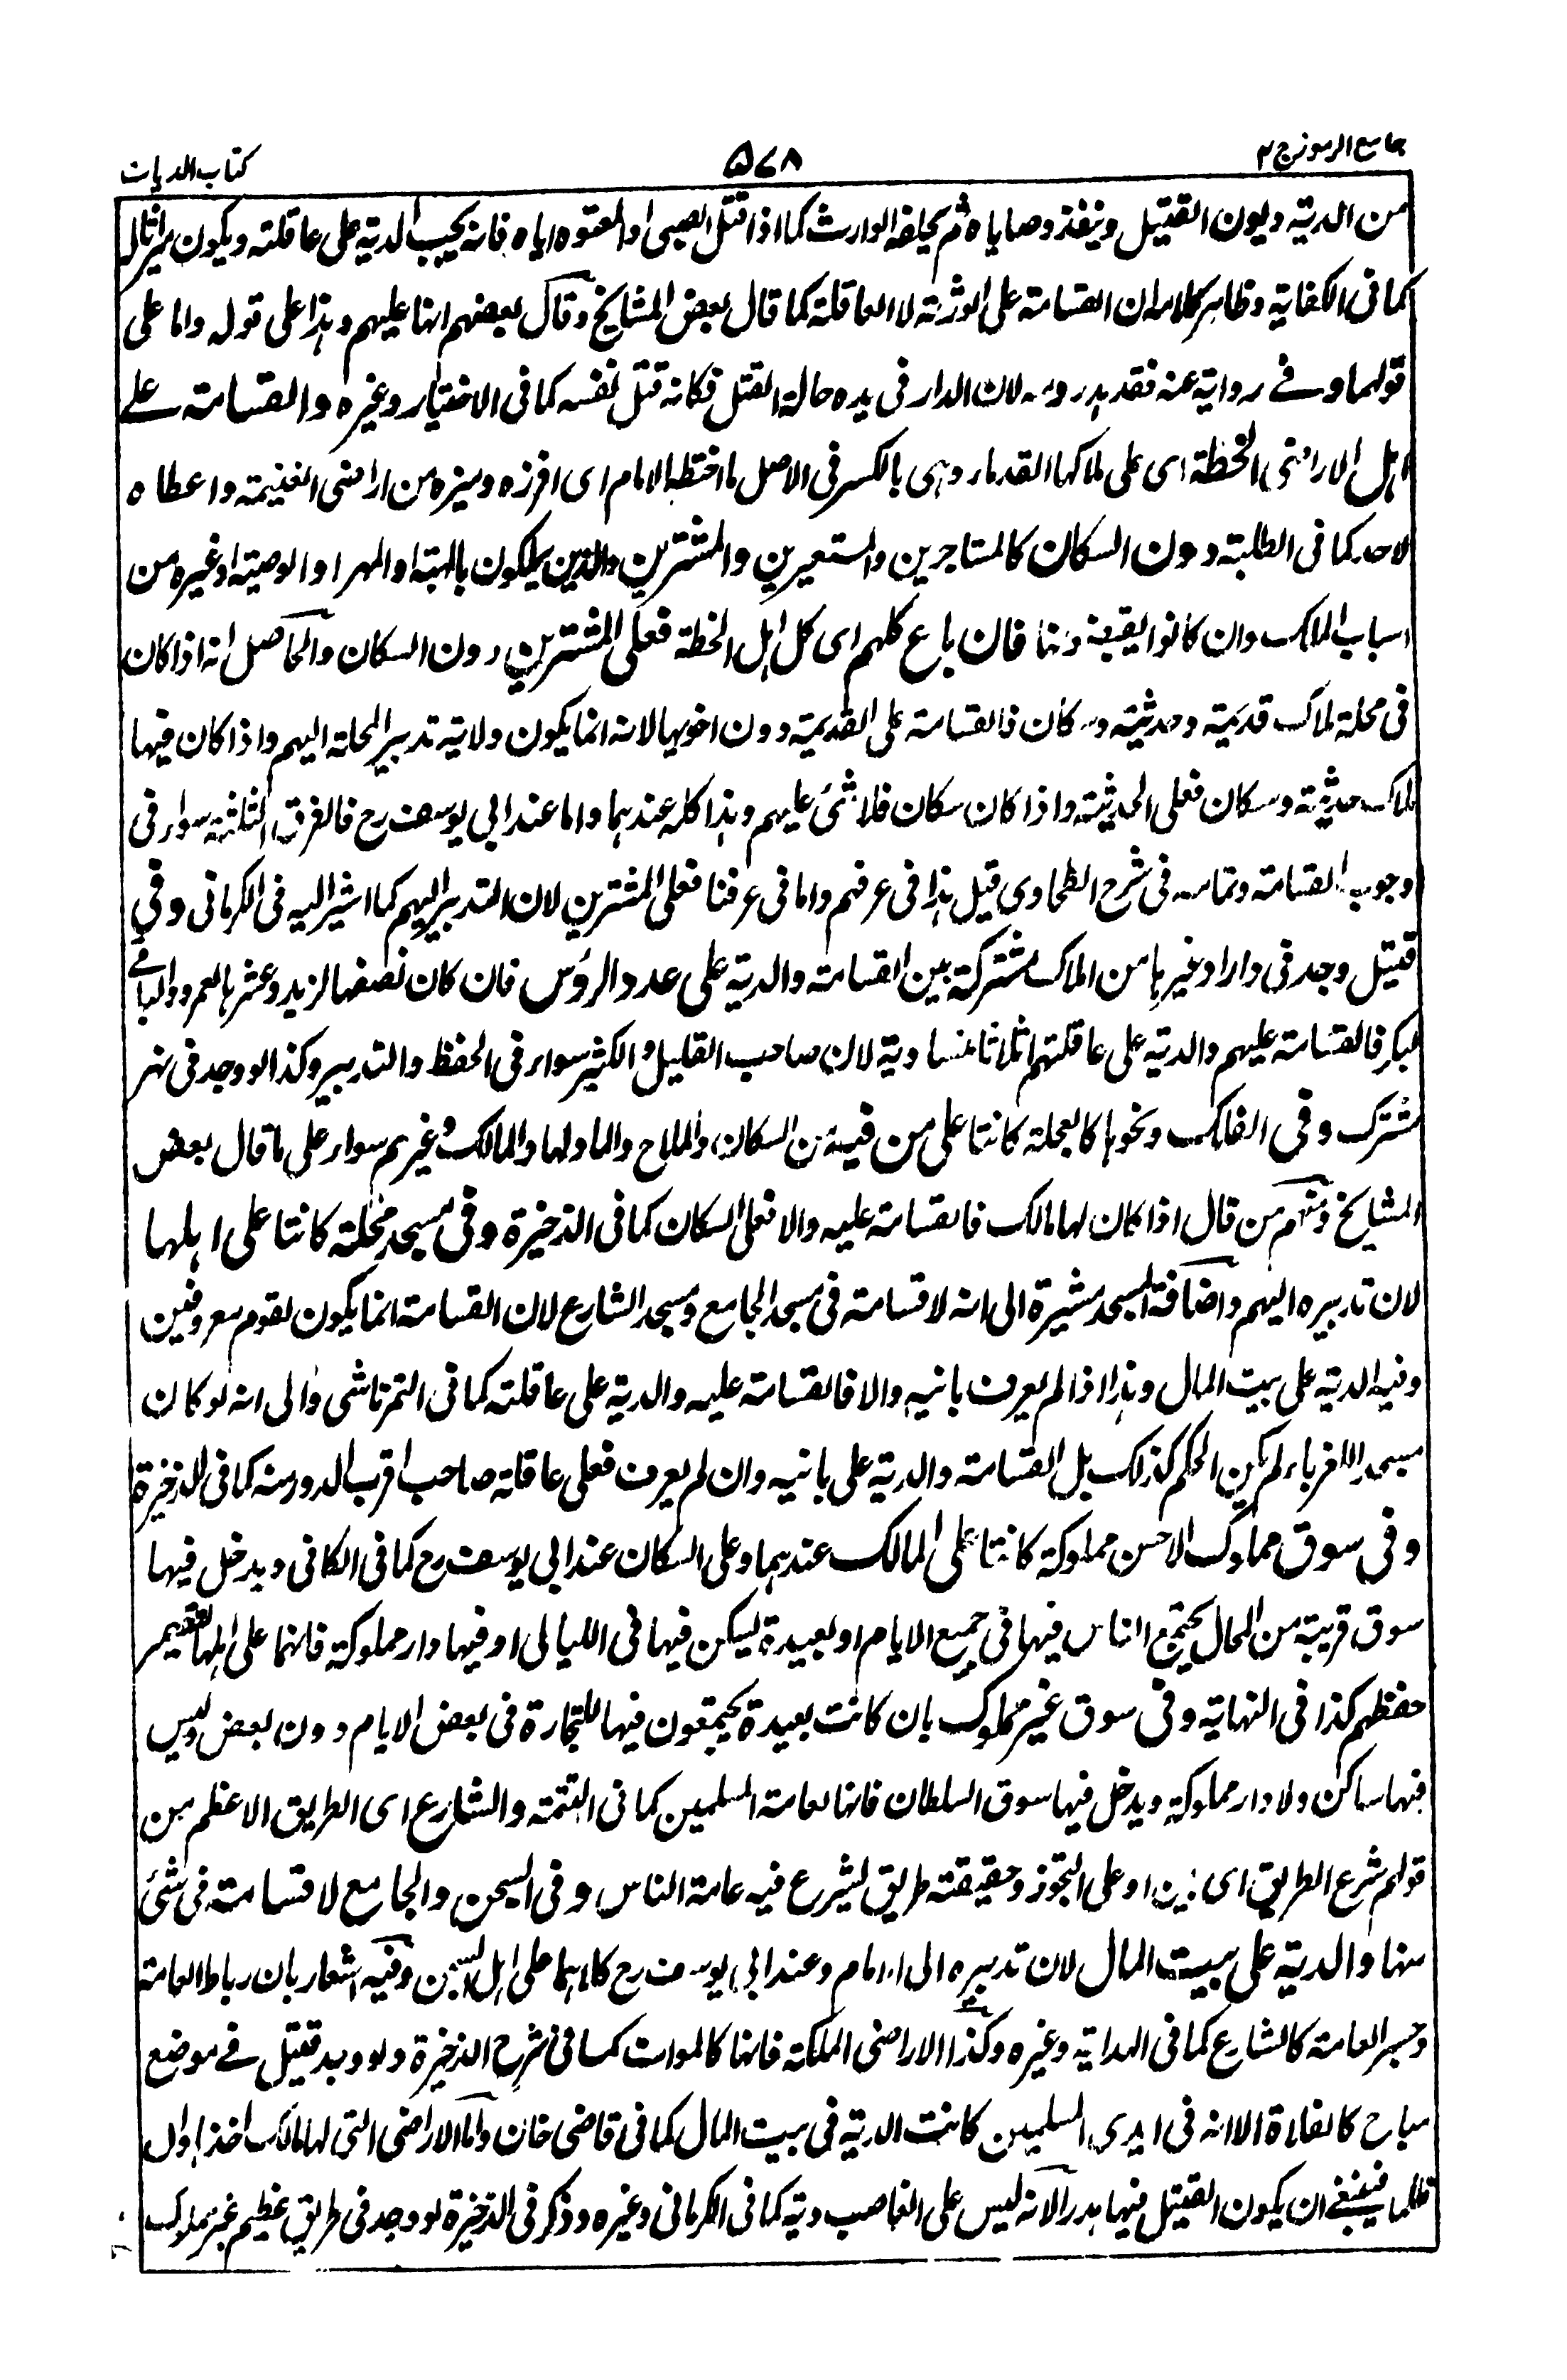 جامع الرموز ج ٢
٥٧٨
كتاب الديات
من الدية ديون القتيل وينفذ وصاياه ثم يخلفه الوارث كما اذا قتل الصبى او المعتوه اياه فانه يجب الدية على عاقلته ويكون ميراثا له
كما فى الكفاية وظاهر كلامه ان القسامة على الورثة لا العاقلة كما قال بعض المشايخ وقال بعضهم انها عليهم وهذا على قوله واما على
قولهما وفے رواية عنه فقد هدر دمه لان الدار فى يده حالة القتل فكانه قتل نفسه كما فى الاختيار وغيره والقسامة علے
اهل الاراضى الخطة اى على ملاكها القدماء وهى بالكسر فى الاصل ما اختطه الامام اى افرزه وميزه من اراضى الغنيمة واعطاه
لاحد كما فى الطلبة دون السكان كالمستاجرين والمستعيرين والمشترين والذين يملكون بالهبة او المهر او الوصية او غيره من
اسباب الملك وان كانوا يقبضونها فان باع كلهم اى كل اهل الخطة فعلى المشترين دون السكان والحاصل انه اذا كان
فى محلة ملاك قديمة وحديثة وسكان فالقسامة على القديمة دون اخويها لانه انما يكون ولاية تدبير المحلة اليهم واذا كان فيها
ملاك حديثة وسكان فعلى الحديثة واذا كان سكان فلا شئ عليهم وهذا كله عندهما واما عند ابى يوسف رح فالفرق الثلثة سواء فى
وجوب القسامة وتمامه فى شرح الطحاوى قيل هذا فى عرفهم واما فى عرفنا فعلى المشترين لان التدبير اليهم كما اشير اليه فى الكرمانى وفي
قتيل وجد فى دار او غيرها من الملاك مشتركة بين القسامة والدية على عدد الرؤس فان كان نصفها لزيد وعشرها لعمرو والباقے
لبكر فالقسامة عليهم والدية على عاقلتهم اثلاثا متساوية لان صاحب القليل والكثير سواء فى الحفظ والتدبير وكذا لو وجد فى نهر
مشترك وفى الفلك ونحوها كالعجلة كانتا على من فيه من السكان والملاح والمادلها والمالك وغيرهم سواء على ما قال بعض
المشايخ ومنهم من قال اذا كان لها مالك فالقسامة عليه والا فعلى السكان كما فى الذخيرة وفى مسجد محلة كانتا على اهلها
لان تدبيره اليهم واضافة المسجد مشيرة الى انه لا قسامة فى مسجد الجامع ومسجد الشارع لان القسامة انما يكون لقوم معروفين
وفيه الدية على بيت المال وهذا اذا لم يعرف بانيه والا فالقسامة عليه والدية على عاقلته كما فى التمرتاشى والى انه لو كان
مسجدا للغرباء لم يكن الحكم كذلك بل القسامة والدية على بانيه وان لم يعرف فعلى عاقلة صاحب اقرب الدور منه كما فى الذخيرة
وفى سوق مملوك الاحسن مملوكة كانتا على المالك عندهما وعلى السكان عند ابى يوسف رح كما فى الكافى ويدخل فيها
سوق قريبة من المحال يجتمع الناس فيها فى جميع الايام او بعيدة ليسكن فيها فى الليالى او فيها دار مملوكة فانهما على اهلها لتقصير
حفظهم كذا فى النهاية وفى سوق غير مملوك بان كانت بعيدة يجتمعون فيها للتجارة فى بعض الايام دون بعض وليس
فيها ساكن ولا دار مملوكة ويدخل فيها سوق السلطان فانها لعامة المسلمين كما فى التتمة والشارع اى الطريق الاعظم من
قولهم شرع الطريق اى بين او على التجوز وحقيقته طريق يشرع فيه عامة الناس وفى السجن والجامع لا قسامة فى شئ
منها والدية على بيت المال لان تدبيره الى الامام وعند ابى يوسف رح كلاهما على اهل السجن وفيه اشعار بان رباط العامة
وجسر العامة كالشارع كما فى الهداية وغيره وكذا الاراضى الملكة فانها كالموات كما فى شرح الذخيرة ولو وجد قتيل فے موضع
مباح كالفلاة الا انه فى ايدى المسلمين كانت الدية فى بيت المال كما فى قاضى خان واما الاراضى التى لها مالك اخذها وال
ظلما فينبغے ان يكون القتيل فيها هدرا لانه ليس على الغاصب دية كما فى الكرمانى وغيره وذكر فى الذخيرة لو وجد فى طريق عظيم غير مملوك